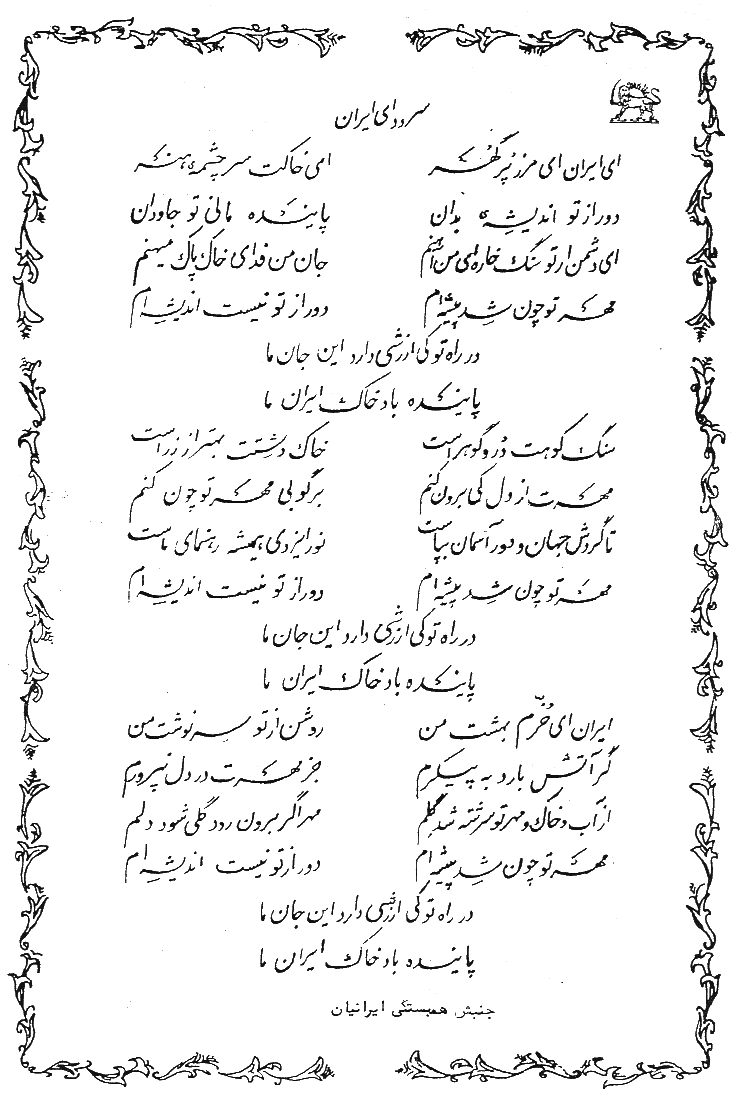 سرود ای ایران
ای ایران ای مرز پر گهر ای خاکت سرچشمهٔ هنر
دور از تو اندیشهٔ بدان پاینده مانی تو جاودان
ای دشمن ار تو سنگ خاره‌ای من آهنم جان من فدای خاک پاک میهنم
مهر تو چون شد پیشه‌ام دور از تو نیست اندیشه‌ام
در راه تو کی ارزشی دارد این جان ما
پاینده باد خاک ایران ما
سنگ کوهت در و گوهر است خاک دشتت بهتر از زر است
مهرت از دل کی برون کنم برگو بی مهر تو چون کنم
تا گردش جهان و دور آسمان بپاست نور ایزدی همیشه رهنمای ماست
مهر تو چون شد پیشه‌ام دور از تو نیست اندیشه‌ام
در راه تو کی ارزشی دارد این جان ما
پاینده باد خاک ایران ما
ایران ای خرم بهشت من روشن از تو سرنوشت من
گر آتش بارد به پیکرم جز مهرت در دل نپرورم
از آب و خاک و مهر تو سرشته شد گلم مهر اگر برون رود گلی شود دلم
مهر تو چون شد پیشه‌ام دور از تو نیست اندیشه‌ام
در راه تو کی ارزشی دارد این جان ما
پاینده باد خاک ایران ما
جنبش همبستگی ایرانیان